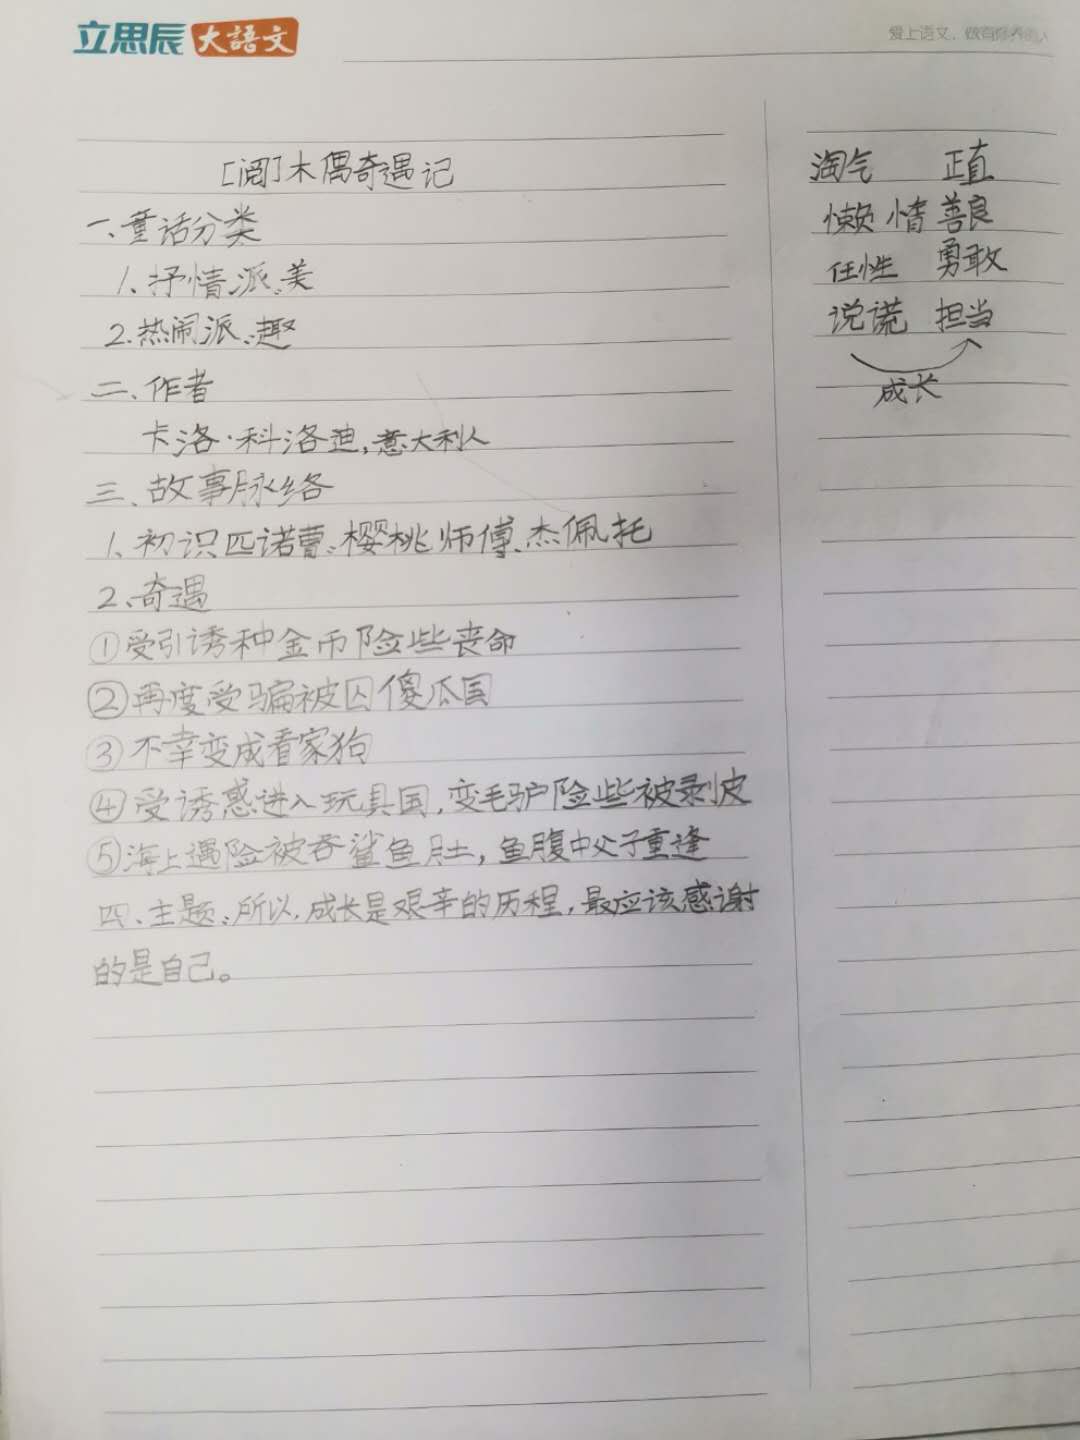 立思辰大語文
爱上语文，做有修养的人
[阅]木偶奇遇记
一、童话分类
1、抒情派:美
2、热闹派:趣
二、作者
卡洛·科洛迪,意大利人
三、故事脉络
1、初识匹诺曹:樱桃师傅、杰佩托
2、奇遇
①受引诱种金币险些丧命
②再度受骗被囚傻瓜国
③不幸变成看家狗
④受诱惑进入玩具国,变毛驴险些被剥皮
⑤海上遇险被吞鲨鱼肚,鱼腹中父子重逢
四、主题:所以,成长是艰辛的历程,最应该感谢
的是自己。
淘气 正直
懒惰 善良
任性 勇敢
说谎 担当
成长